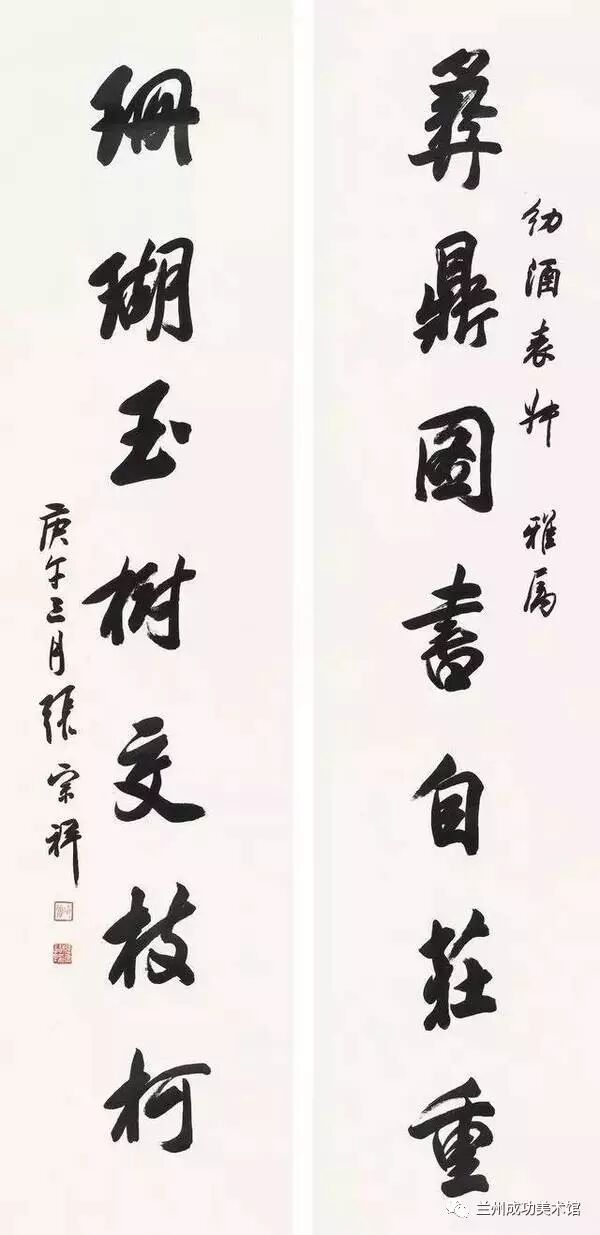 幼酒表 雅属
彝鼎圖書自莊重
珊瑚玉樹交枝柯
庚午三月張宗祥
兰州成功美术馆